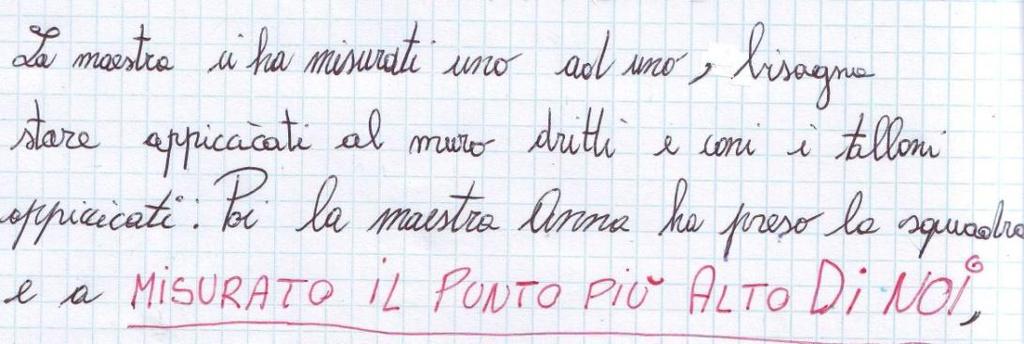 La maestra ci ha misurati uno ad uno, bisogna
stare appiccicati al muro dritti e coni i talloni
appiccicati. Poi la maestra Anna ha preso la squadra
e a MISURATO IL PUNTO PIÙ ALTO Di NOI,